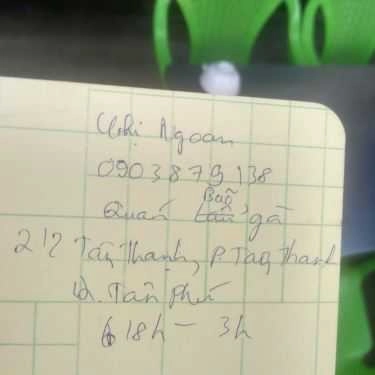 Chị Ngoan
0903879138
Quán Lẩu gà
212 Tân Thạnh, P. Tân Thành
Q. Tân Phú
18h - 3h